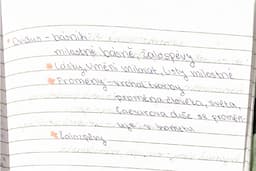 Ovidius - básník
milostné básně, žalozpěvy
Lásky, Umění milovat, Listy milostné
Proměny - vrchol tvorby
proměna člověka, světa,
Caesarova duše se promění-
v kometu
Žalozpěvy